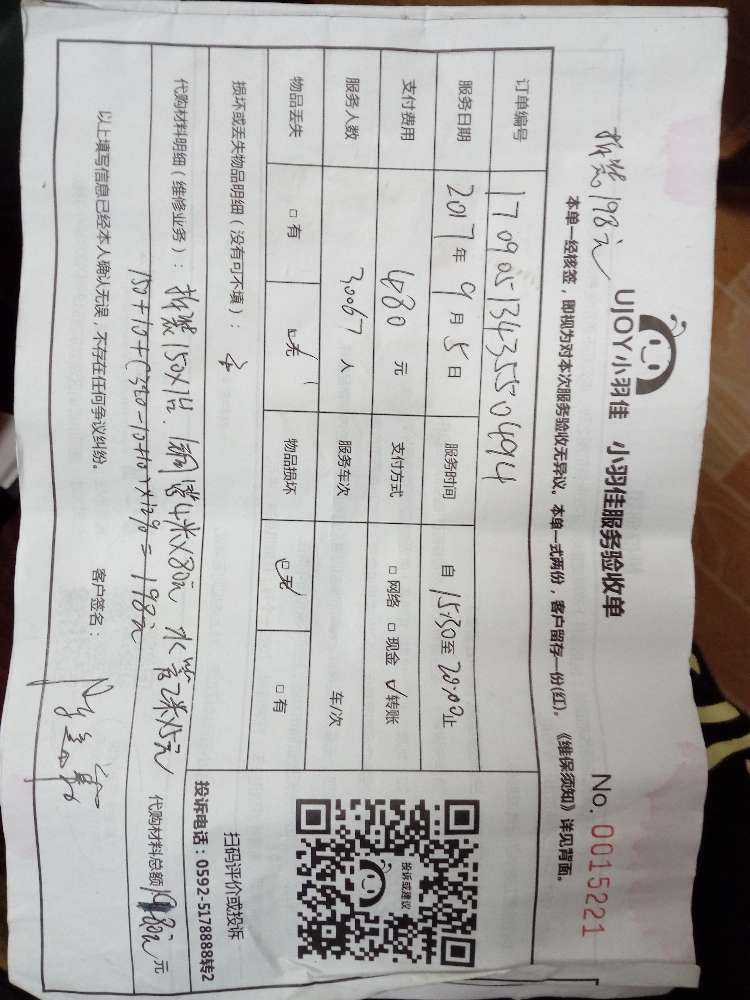 拆装198元
UJOY小羽佳 小羽佳服务验收单
No. 0015221
本单一经核签，即视为对本次服务验收无异议。本单一式两份，客户留存一份(红)。《维保须知》详见背面。
订单编号 17090513435504094
服务日期 2017年9月5日 服务时间 自15:30至20:00止
支付费用 680元 支付方式 □网络 □现金 ☑转账
服务人数 3.0067人 服务车次 车/次
物品丢失 □有 ☑无 物品损坏 ☑无 □有
损坏或丢失物品明细（没有可不填）：
代购材料明细（维修业务）：拆装150×1台. 铜管4米×80元 水管2米×5元
代购材料总额198元 元
以上填写信息已经本人确认无误，不存在任何争议纠纷。 客户签名：
投诉或建议
扫码评价或投诉
投诉电话：0592-5178888转2